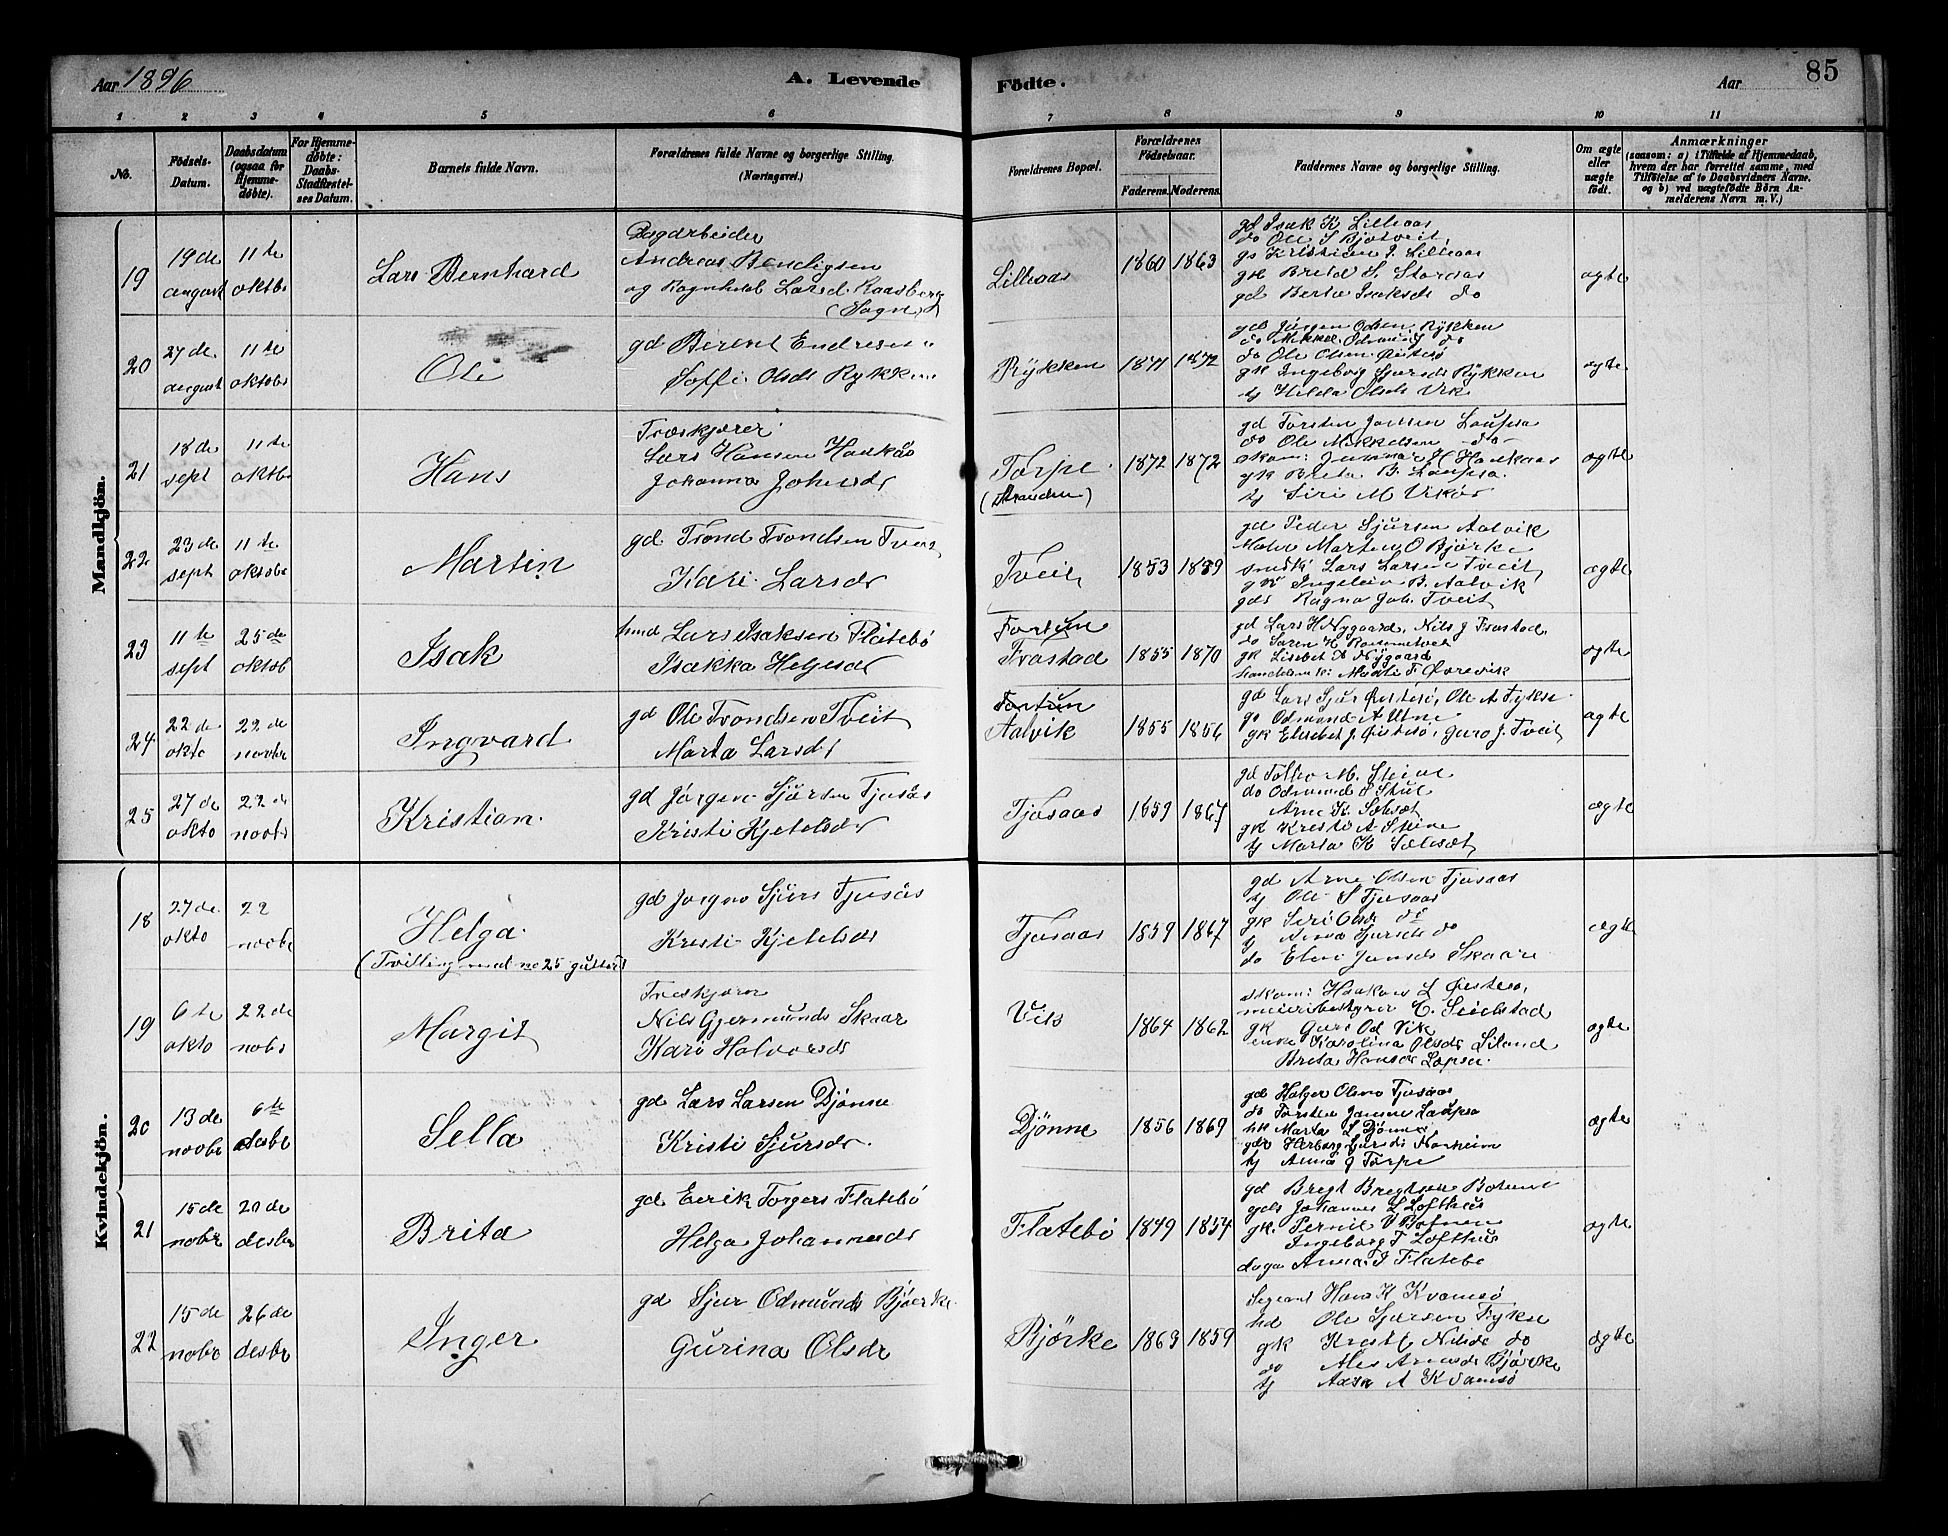 Aar 1896 A. Levende Födte. Aar 85
1 2 3 4 5 6 7 8 9 10 11
No.
Födsels-Datum.
Daabsdatum (ogsaa för Hjemme-döbte).
For Hjemme-döbte: Daabs-Stadfæstel-ses Datum.
Barnets fulde Navn.
Forældrenes fulde Navne og borgerlige Stilling.
(Næringsvei.)
Forældrenes Bopæl.
Forældrenes Födselsaar.
Faderens. Moderens.
Faddernes Navne og borgerlige Stilling.
Om ægte eller uægte födt.
Anmærkninger
(saasom: a) i Tilfælde af Hjemmedaab,
hvem der har forrettet samme, med
Tilföielse af to Daabsvidners Navne.
og b) ved uægtefödte Börn An-
melderens Navn m. V.)
Mandkjön.
19
19 de august
11 te oktobr
Lars Bernhard
Dagarbeider
Andreas Bendigsen
og Ragnhild Larsd. Kaasberg
(Sogn)
Lilleaas
1860 1863
gd Isak K Lilleaas
do Ole S Bjotveit
gs Kristian I. Lilleaas
gk Brita S. Storaas
gd Berta Isaksdr do
ægte
20
27 de august
11 te oktobr
Ole
gd Berent Endresen
Soffi Olsdr Rykken
Rykken
1871 1872
gd Jörgen Odsen Rykken
do Mikkel Odmund do
do Ole Olsen Östesö
gk Ingeborg Sjursdr Rykken
tj Hilda Olsdr Vik
ægte
21
18 de sept
11 te oktobr
Hans
Træskjærer
Lars Hansen Haukås
Johanna Johnsdr
Torpe
(Stranden)
1872 1872
gd Torsten Jansen Laupsa
do Ole Mikkelsen do
skom: Gunnar H Haukaas
gk Brita B. Laupsa
tj Siri M Vikör
ægte
22
23 de sept
11 te oktobr
Martin
gd Trond Trondsen Tveit
Kari Larsdr
Tveit
1853 1859
gd Peder Sjursen Aalvik
Maler Marten O Björke
snedk Lars Larsen Tveit
gk Ingeleiv B. Aalvik
gds Ragna Joh. Tveit
ægte
23
11 te sept
25 de oktob
Isak
hmd Lars Isaksen Flatebö
Isakka Helgesdr
Fortun
Frostad
1855 1870
gd Lars H Nygaard, Nils J Frostad
do Sören H Rommetveit
gk Lisebet A Nygaard
handelsm k: Marte T Övrevik
ægte
24
22 de okto
22 de novbr
Ingvard
gd Ole Trondsen Tveit
Marta Larsdr
Fortun
Aalvik
1855 1856
gd Lars Sjur Östesö, Ole A Fykse
gs Odmund A Utne
gk Elisebet J. Östesö, Guro J. Tveit
ægte
25
27 de okto
22 de novbr
Kristian
gd Jörgen Sjursen Tjosås
Kristi Kjetelsdr
Tjosaas
1859 1867
gd Tolleiv M. Steine
do Odmund S Skut
Arne K. Sælsæt
gk Kristi A Steine
tj Marta K Sælesæt
ægte
Kvindekjön.
18
27 de okto
22 novbr
Helga
(Tvilling med no 25 gutter)
gd Jorgen Sjurs Tjosås
Kristi Kjetelsdr
Tjosaas
1859 1867
gd Arne Olsen Tjosaas
tj Ole S Tjosaas
gk Siri Olsdr do
tj Anna Sjursdr do
do Elen Jansdr Skaare
ægte
19
6 te okto
22 de nobr
Margit
Treskjærer
Nils Gjermunds Skaar
Kari Halvorsdr
Vik
1864 1862
skom: Haakon L Östese,
meieribestyrer C. Seielstad
gk Guro Od Vik
enke Karolina Olsdr Liland
Brita Hansdr Lepsøe
ægte
20
13 de novbr
6 te desbr
Sella
gd Lars Larsen Djönne
Kristi Sjursdr.
Djönne
1856 1869
gd Holger Olsen Tjosaas
do Torsten Jansen Laupsa
hk Marta L Djönne
gdr Herborg Sjursdr Norheim
tj Anna J Torpe
ægte
21
15 de nobr
20 de desbr
Brita
gd Eerik Torgers Flatebö
Helga Johannesdr
Flatebö
1849 1854
gd Bregt Bregtsen Botnen
gds Johannes L Lofthus
gk. Pernie V Botnen
Ingeborg T Lofthus
daga Anna J Flatebö
ægte
22
15 de nobr
26 de desbr
Inger
gd Sjur Odmunds Björke
Gurina Olsdr
Björke
1863 1859
Sergeant Hans K Kvamsö
hd Ole Sjursen Fykse
gk Kristi Nilsdr do
do Ales Arnesdr Björke
tj Aasa A Kvamsö
ægte